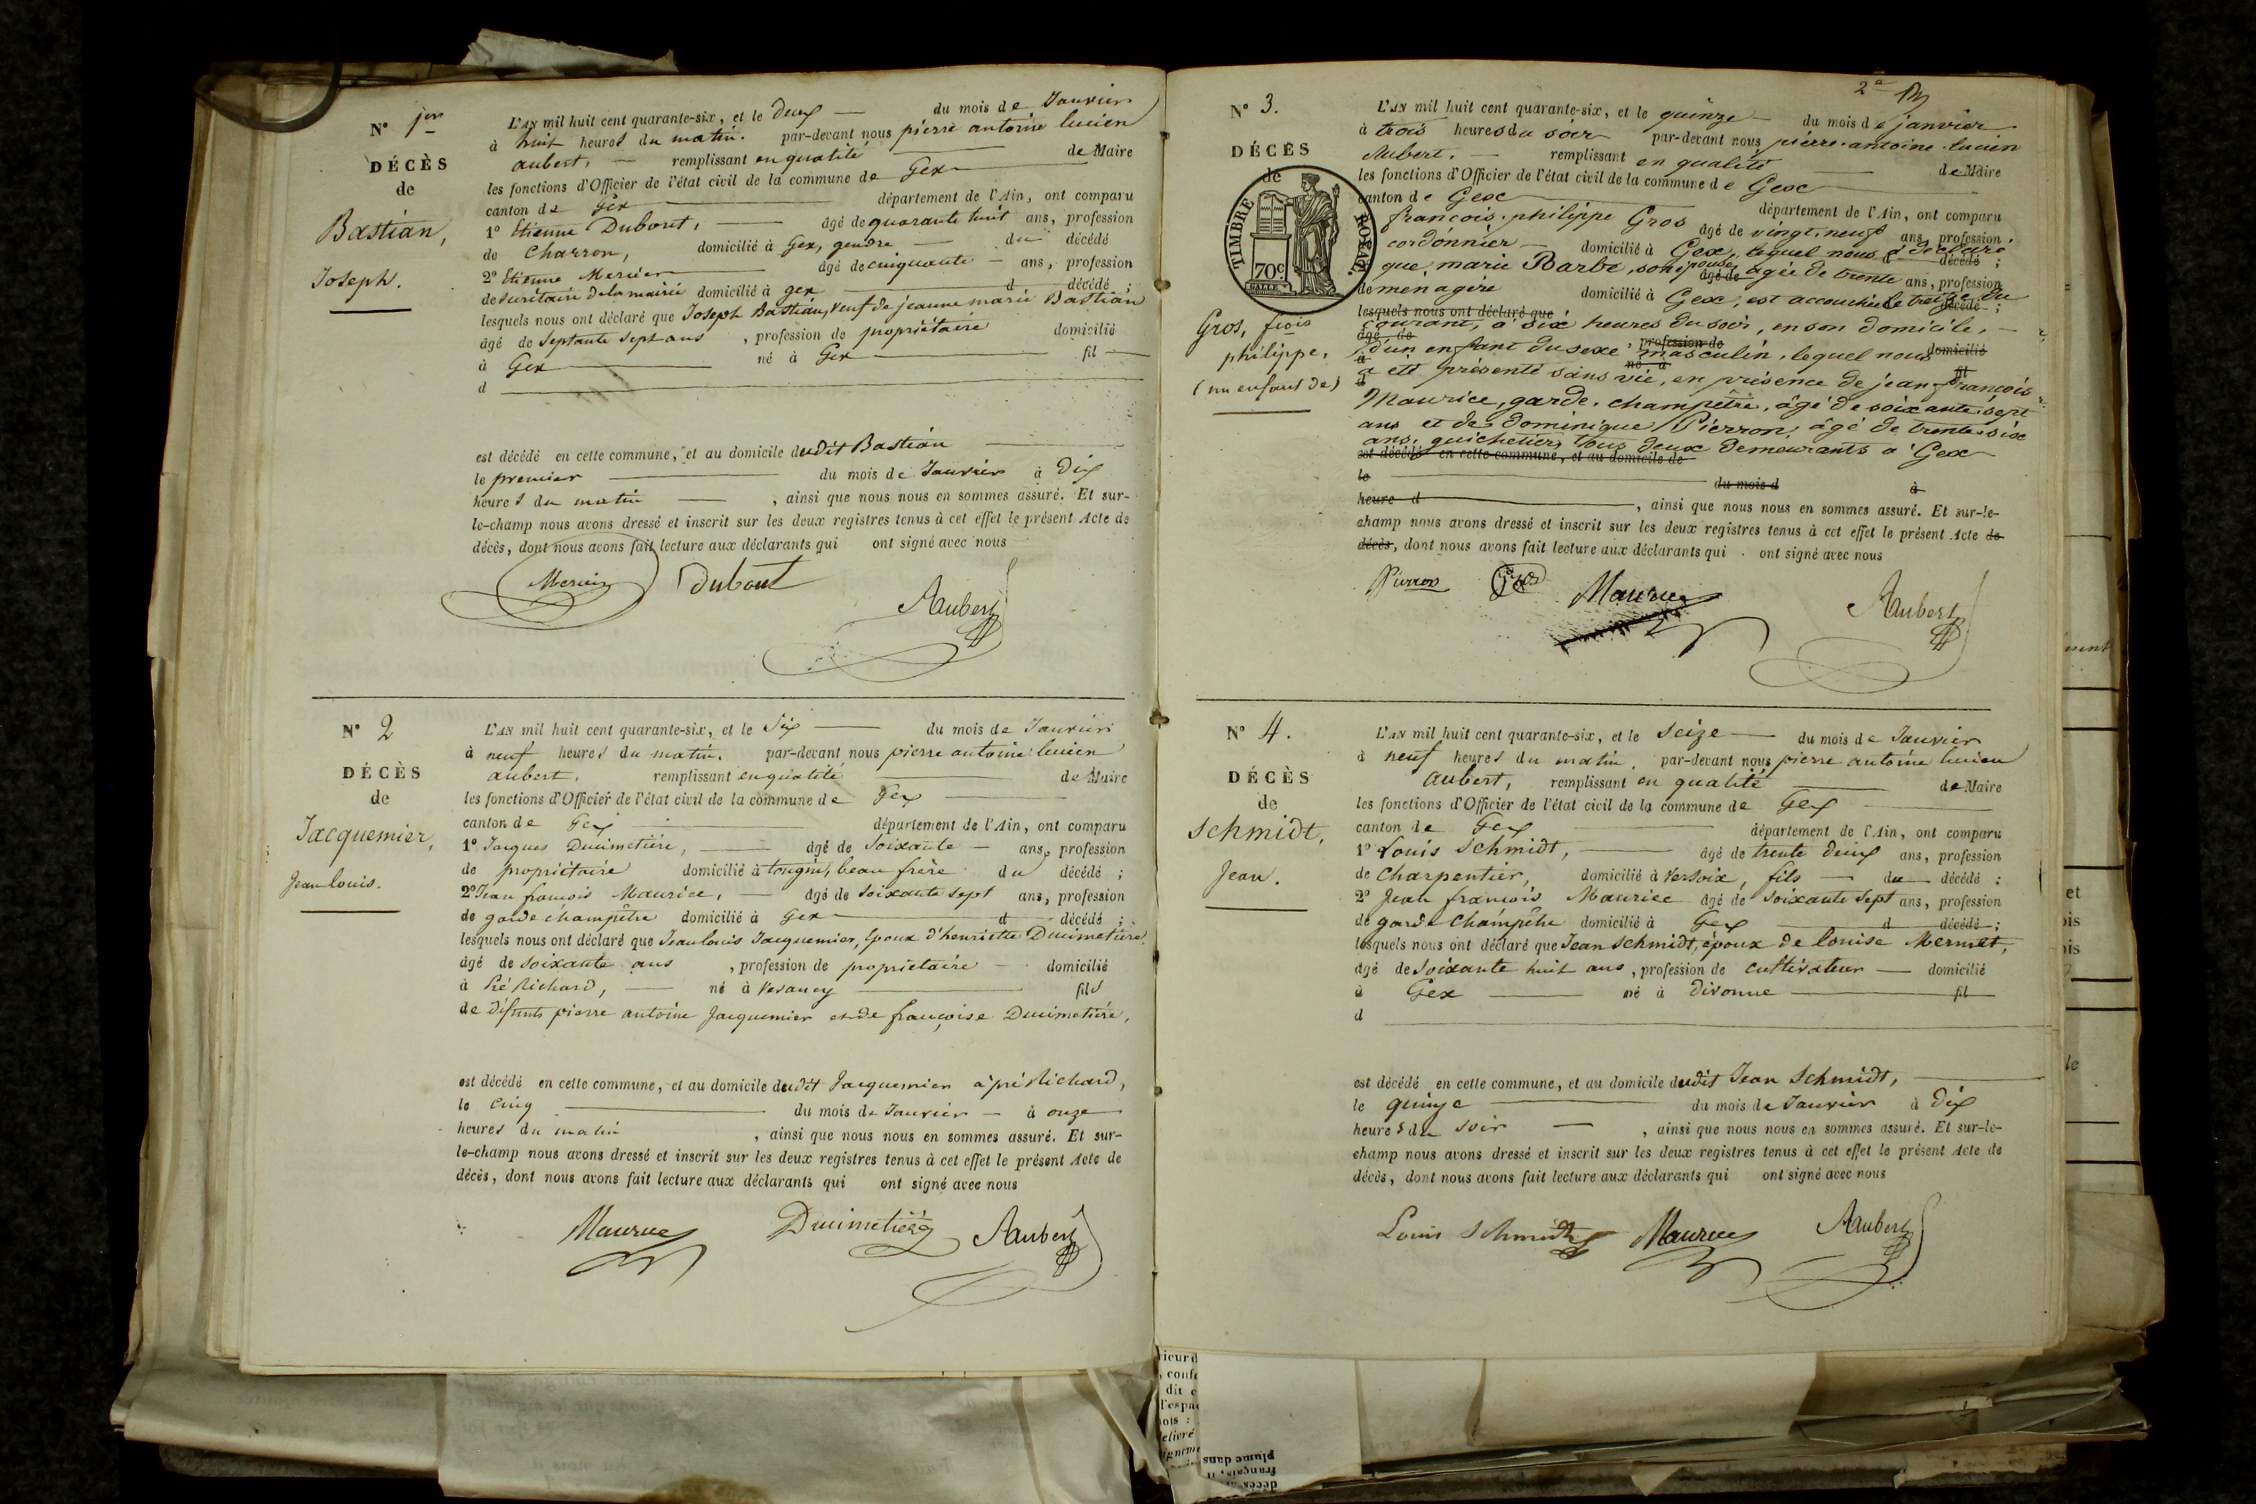 N° 1er
DÉCÈS
de
Bastian,
Joseph.
L'AN mil huit cent quarante-six, et le deux du mois de Janvier
à huit heures du matin. par-devant nous pierre antoine lucien
aubert, remplissant en qualité de Maire
les fonctions d'Officier de l'état civil de la commune de Gex
canton de Gex département de l'Ain, ont comparu
1° Etienne Dubout, âgé de quarante huit ans, profession
de Charron, domicilié à Gex, gendre du décédé
2° Etienne Mercier âgé de cinquante ans, profession
de secrétaire de la mairie domicilié à gex d décédé ;
lesquels nous ont déclaré que Joseph Bastian, veuf de jeanne marie Bastian
âgé de septante sept ans , profession de propriétaire domicilié
à Gex né à Gex fil
d
est décédé en cette commune, et au domicile dudit Bastian
le premier du mois de Janvier à dix
heures du matin , ainsi que nous nous en sommes assuré. Et sur-
le-champ nous avons dressé et inscrit sur les deux registres tenus à cet effet le présent Acte de
décès, dont nous avons fait lecture aux déclarants qui ont signé avec nous
Mercier Dubout Aubert
N° 2
DÉCÈS
de
Jacquemier,
Jean louis.
L'AN mil huit cent quarante-six, et le six du mois de Janvier
à neuf heures du matin. par-devant nous pierre antoine lucien
aubert, remplissant en qualité de Maire
les fonctions d'Officier de l'état civil de la commune de Gex
canton de Gex département de l'Ain, ont comparu
1° Jacques Ducimetière, âgé de soixante ans, profession
de propriétaire domicilié à tougin, beau frère du décédé ;
2° Jean françois Maurice, âgé de soixante sept ans, profession
de garde champêtre domicilié à Gex d décédé ;
lesquels nous ont déclaré que Jean louis Jacquemier, époux d'henriette Ducimetière
âgé de soixante ans , profession de propriétaire domicilié
à Pré Richard, né à Vesancy fils
de défunts pierre antoine Jacquemier et de françoise Ducimetière,
est décédé en cette commune, et au domicile dudit Jacquemier à pré Richard,
le cinq du mois de Janvier à onze
heures du matin , ainsi que nous nous en sommes assuré. Et sur-
le-champ nous avons dressé et inscrit sur les deux registres tenus à cet effet le présent Acte de
décès, dont nous avons fait lecture aux déclarants qui ont signé avec nous
Maurice Ducimetière Aubert
2e
N° 3.
DÉCÈS
de
TIMBRE ROYAL.
70c.
Gros, fçois
philippe,
(un enfant de)
L'AN mil huit cent quarante-six, et le quinze du mois de janvier
à trois heures du soir par-devant nous pierre-antoine-lucien
Aubert, remplissant en qualité de Maire
les fonctions d'Officier de l'état civil de la commune de Gex
canton de Gex département de l'Ain, ont comparu
françois-philippe Gros âgé de vingt-neuf ans, profession
cordonnier domicilié à Gex, lequel nous a déclaré décédé ;
que marie Barbe, son épouse âgé de agée de trente ans, profession
de menagere domicilié à Gex, est accouchée le treize du décédé ;
lesquels nous ont déclaré que
courant, à six heures du soir, en son domicile,
âgé de profession de domicilié
d'un enfant du sexe masculin, lequel nous
à né à fil
a été présenté sans vie, en présence de jean-françois
d
Maurice, garde-champêtre, âgé de soixante-sept
ans et de dominique Pierron, âgé de trente-six
ans, guichetier, tous deux demeurants à Gex
est décédé en cette commune, et au domicile de
le du mois d à
heure d , ainsi que nous nous en sommes assuré. Et sur-le-
champ nous avons dressé et inscrit sur les deux registres tenus à cet effet le présent Acte de
décès, dont nous avons fait lecture aux déclarants qui ont signé avec nous
Pierron Maurice Aubert
N° 4.
DÉCÈS
de
Schmidt,
Jean.
L'AN mil huit cent quarante-six, et le seize du mois de Janvier
à neuf heures du matin, par-devant nous pierre antoine lucien
aubert, remplissant en qualité de Maire
les fonctions d'Officier de l'état civil de la commune de Gex
canton de Gex département de l'Ain, ont comparu
1° Louis Schmidt, âgé de trente deux ans, profession
de Charpentier, domicilié à Versoix, fils du décédé ;
2° Jean françois Maurice âgé de soixante sept ans, profession
de garde champêtre domicilié à Gex d décédé ;
lesquels nous ont déclaré que Jean Schmidt, époux de louise Mermet,
âgé de soixante huit ans , profession de cultivateur domicilié
à Gex né à divonne fil
d
est décédé en cette commune, et au domicile dudit Jean Schmidt,
le quinze du mois de Janvier à dix
heures du soir , ainsi que nous nous en sommes assuré. Et sur-le-
champ nous avons dressé et inscrit sur les deux registres tenus à cet effet le présent Acte de
décès, dont nous avons fait lecture aux déclarants qui ont signé avec nous
Louis Schmidt Maurice Aubert